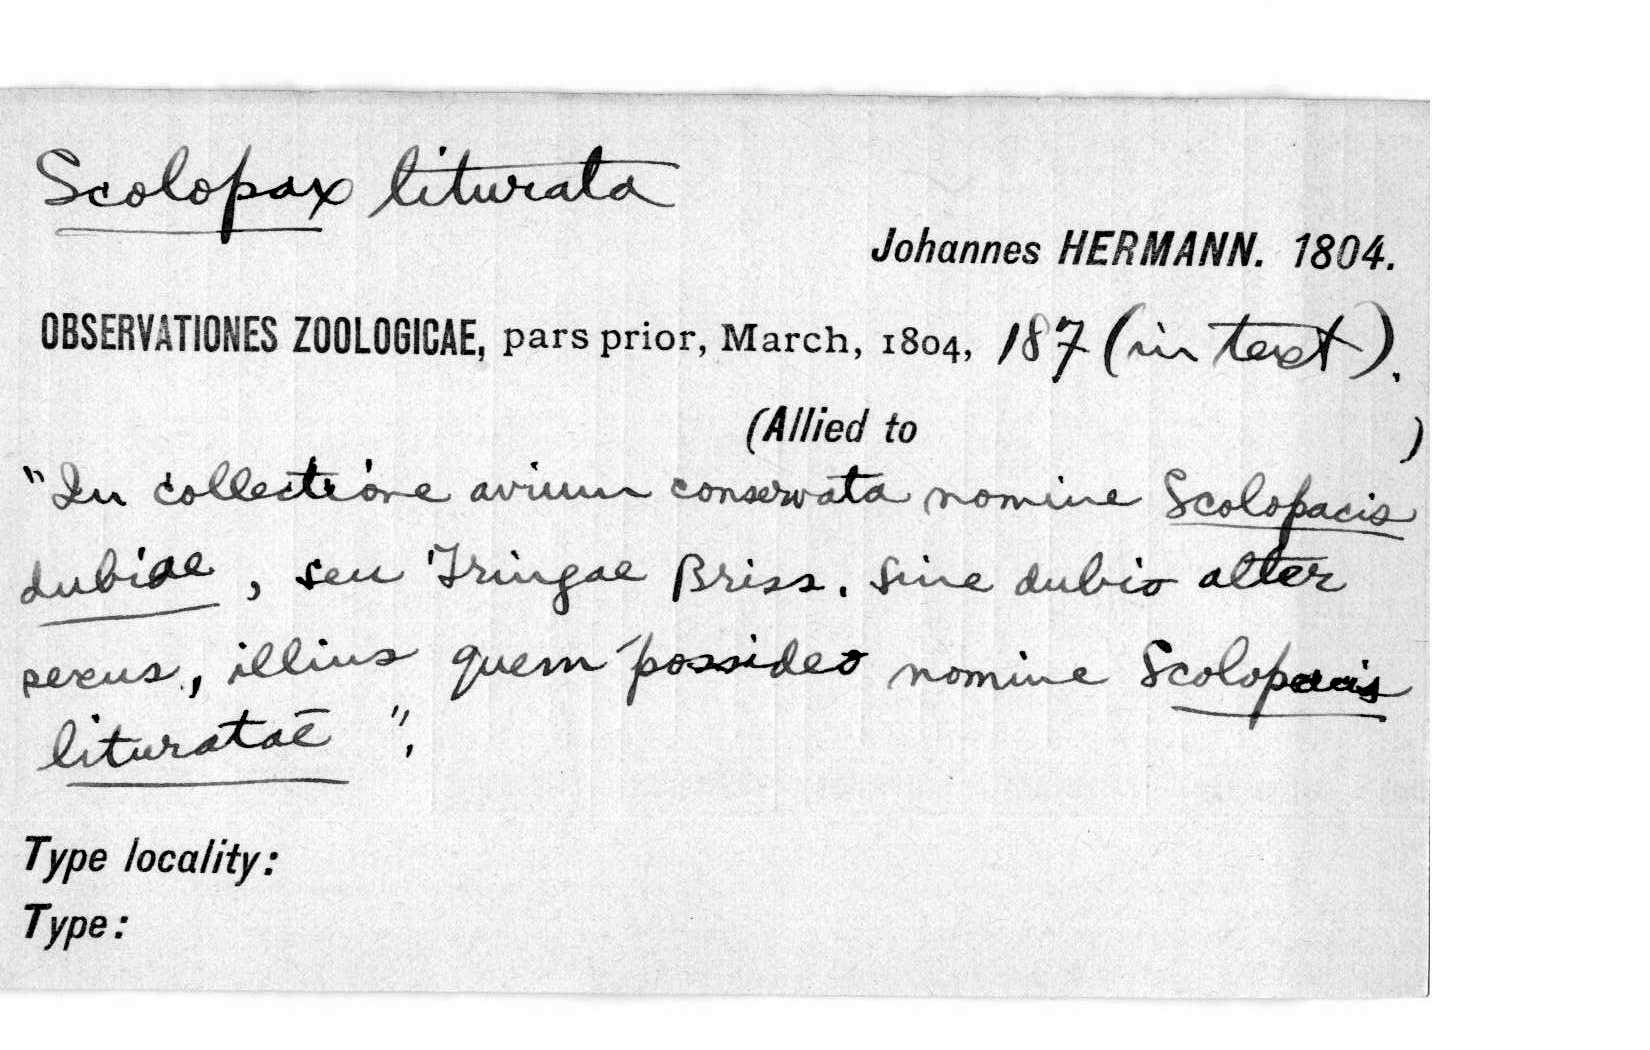 Scolopax liturata
Johannes HERMANN. 1804.
OBSERVATIONES ZOOLOGICAE, pars prior, March, 1804, 187 (in text).
(Allied to )
"In collectione avium conservata nomine Scolopacis
dubiae, seu Tringae Briss. Sine dubio alter
sexus, illius quem possideo nomine Scolopacis
lituratae".
Type locality:
Type: